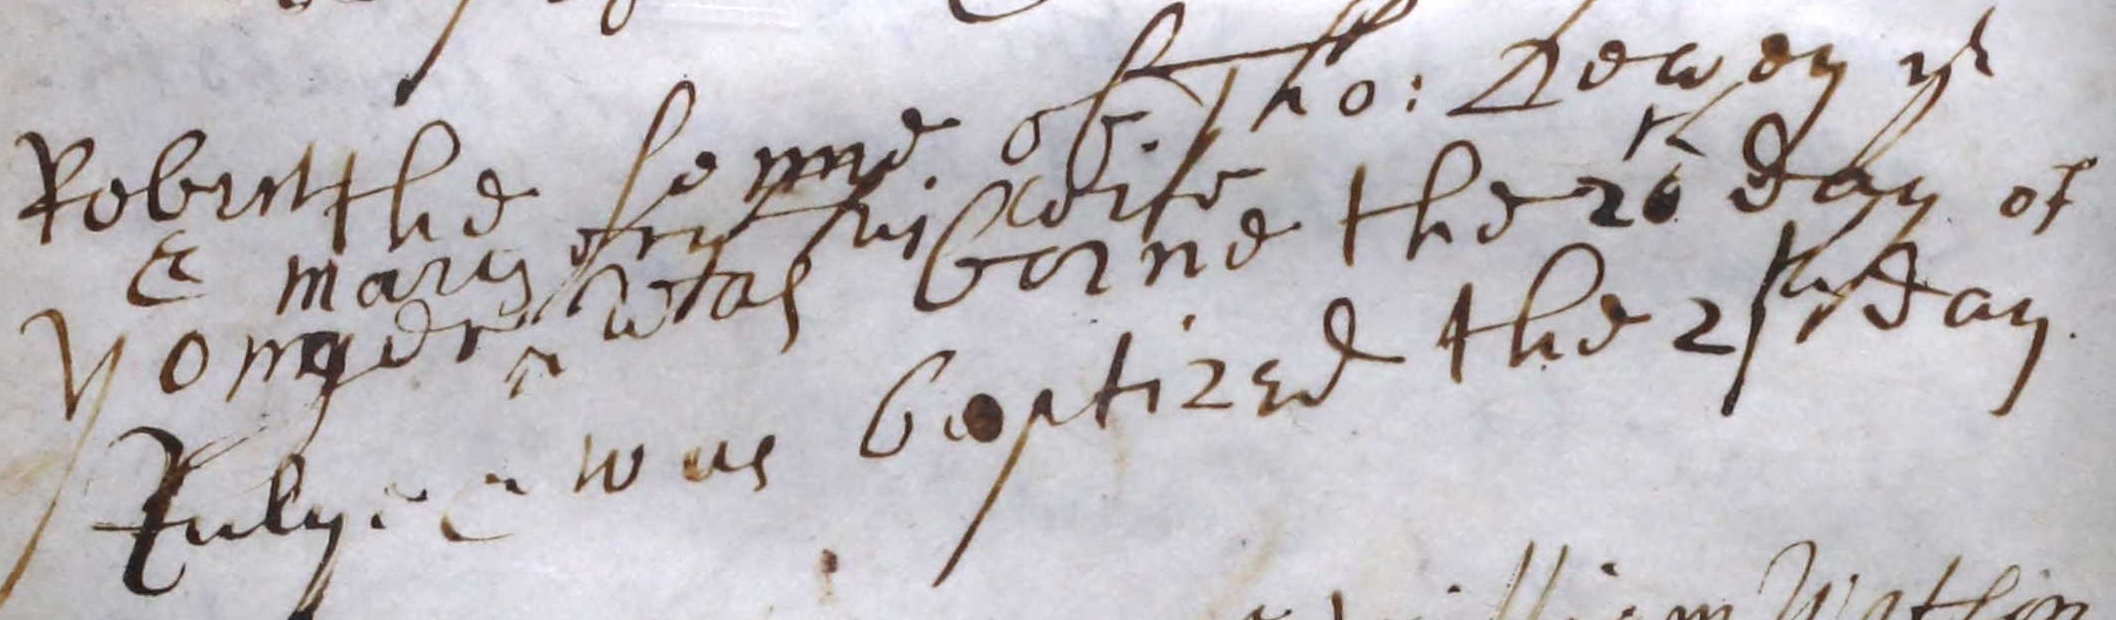 Robert the sonne of Tho: Dewey ye
& mary his wife
yonger was borne the 26th day of
July & was baptized the 2 day
William Watson